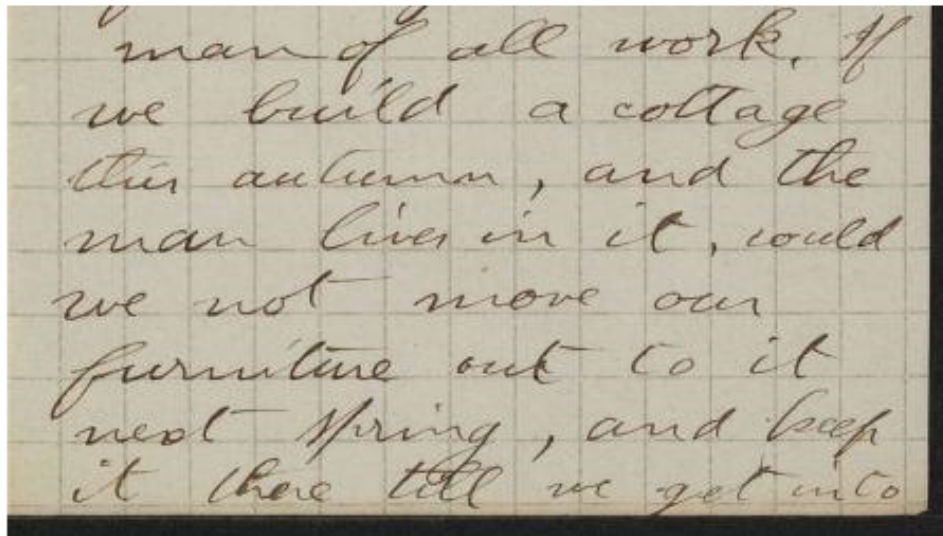 man of all work. If
we build a cottage
this autumn, and the
man lives in it, could
we not move our
furniture out to it
next spring, and keep
it there till we get into